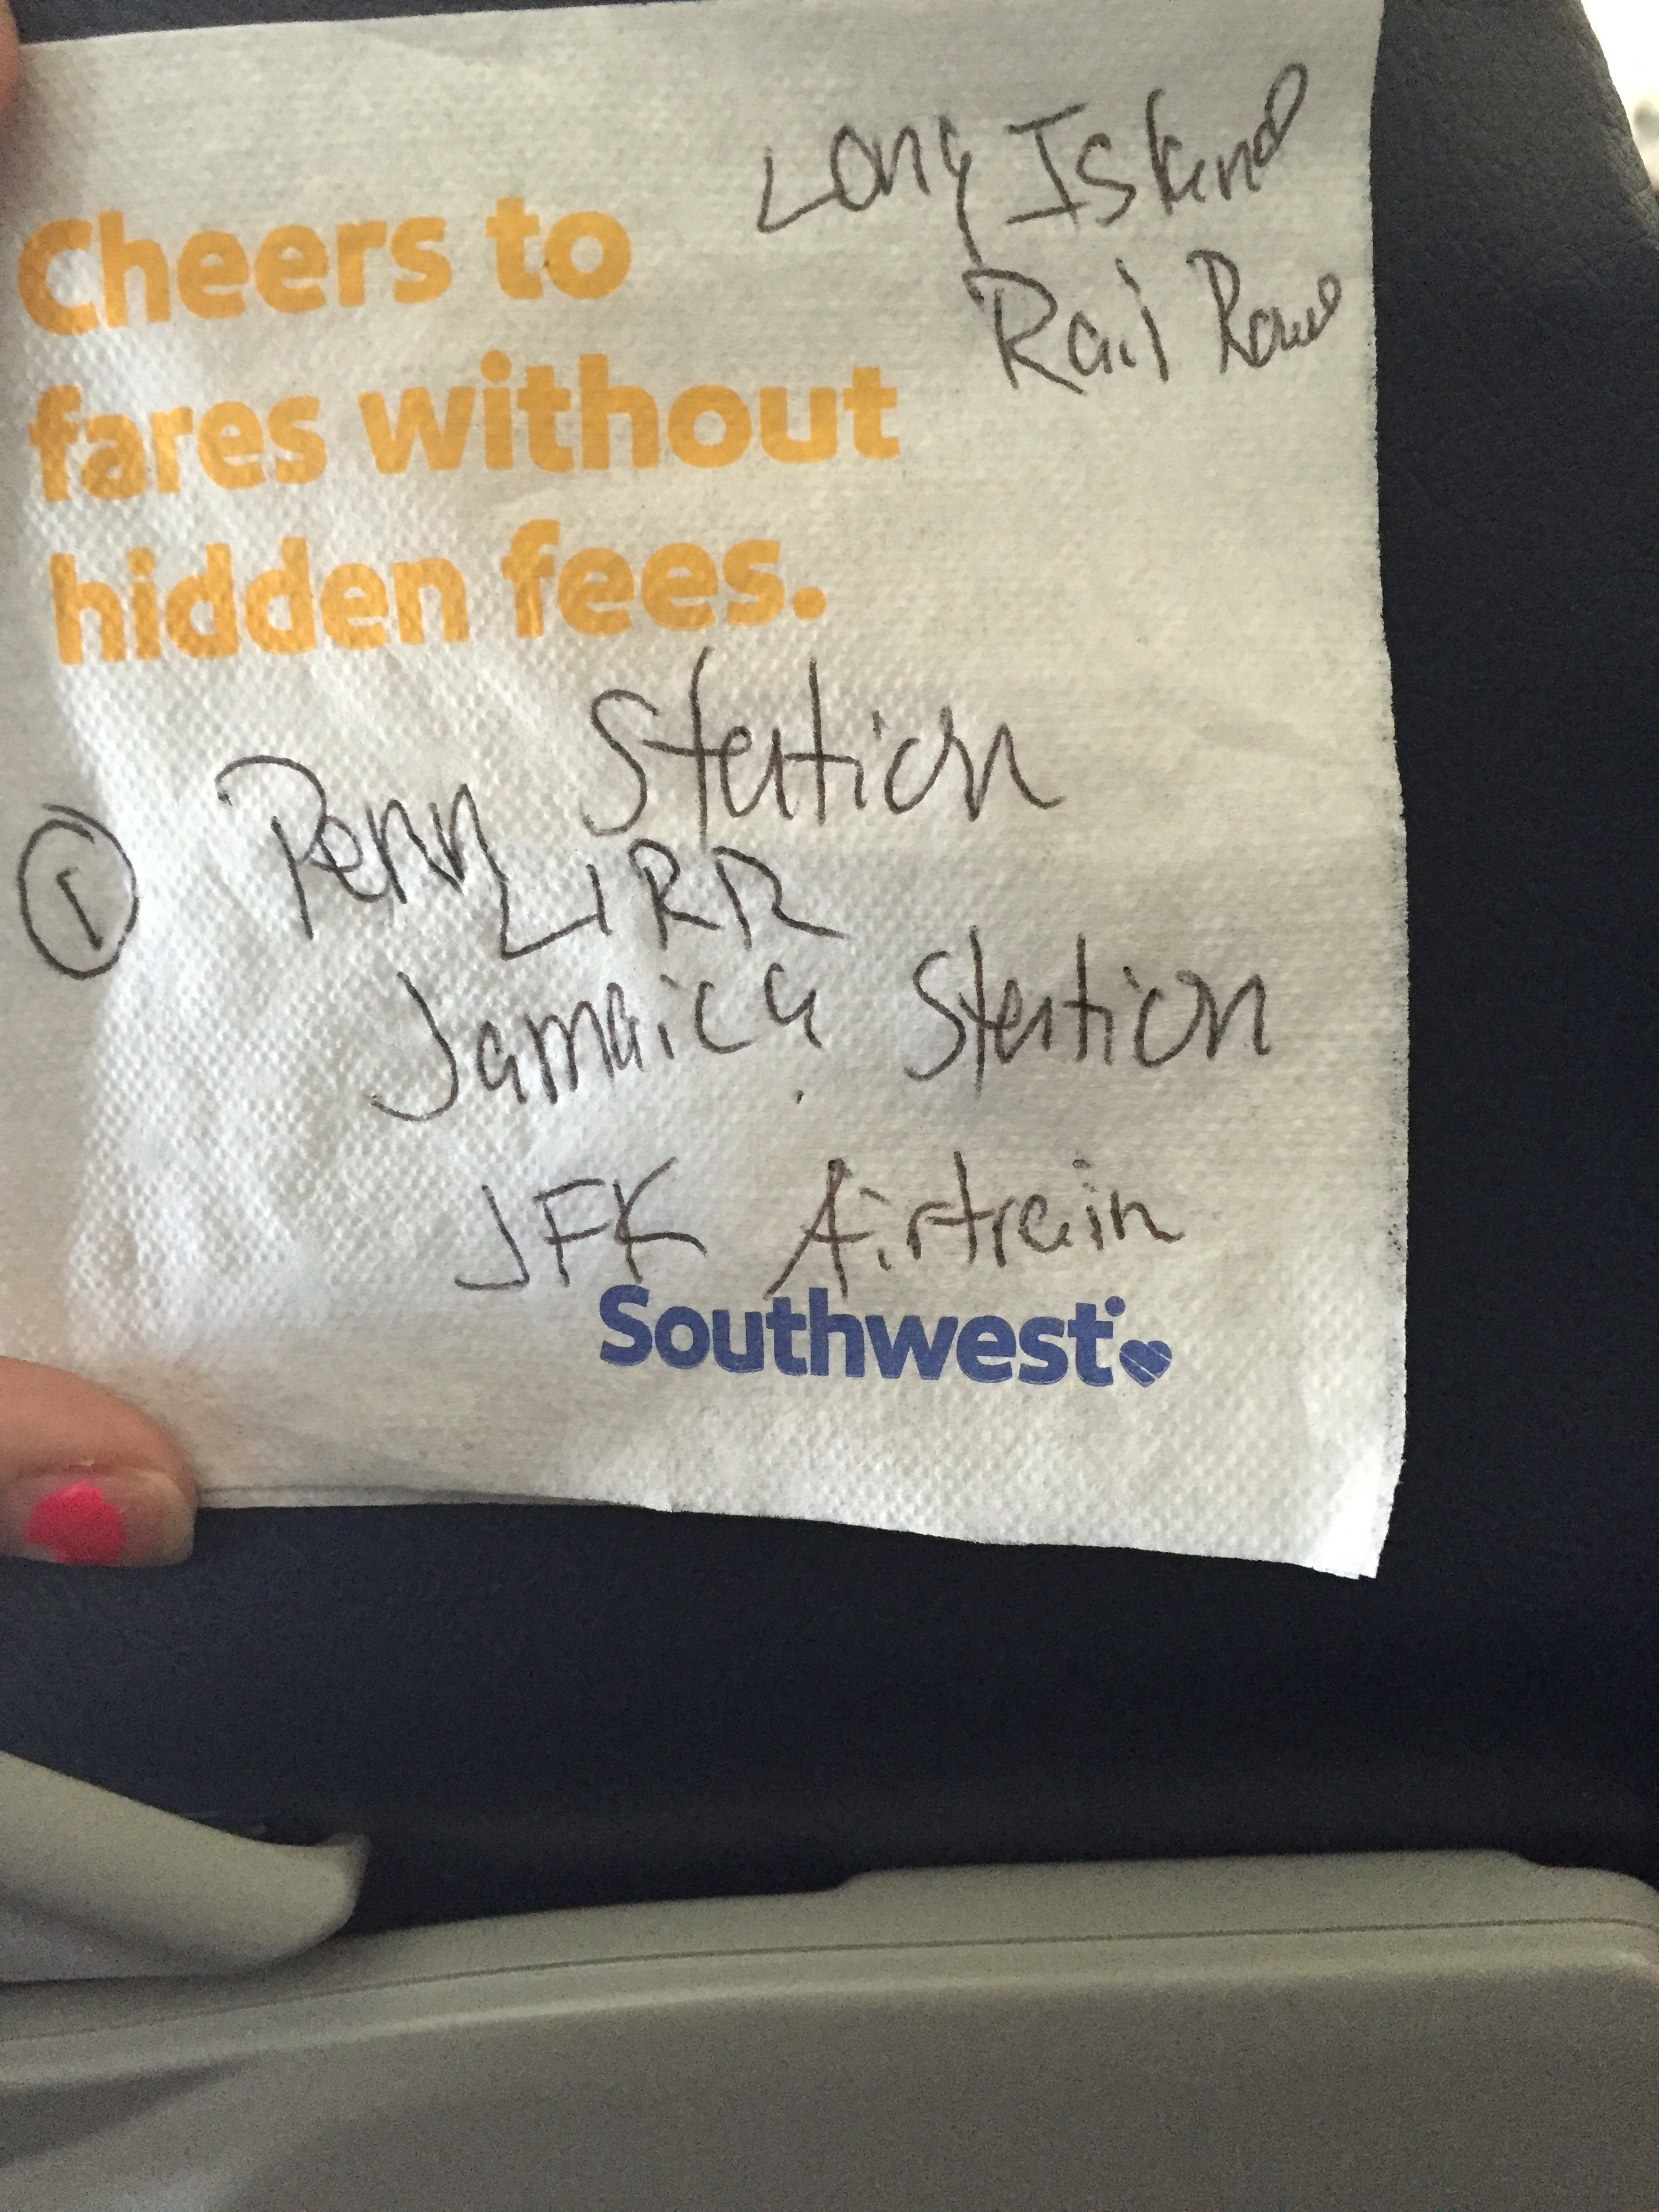 Long Island
Rail Road
Cheers to
fares without
hidden fees.
① Penn Station
LIRR
Jamaica Station
JFK Airtrain
Southwest